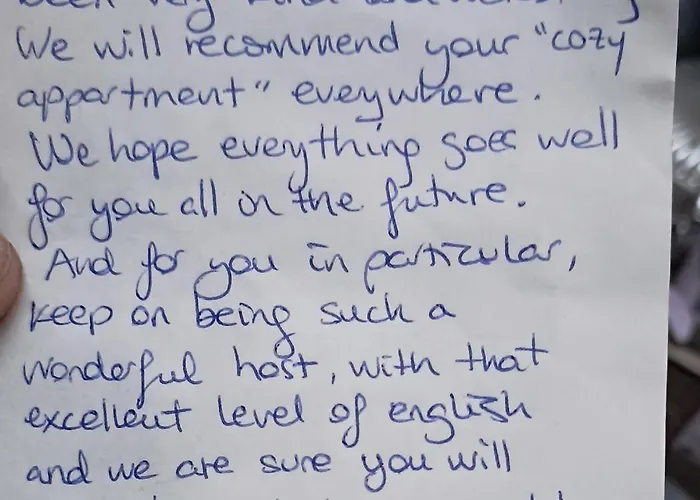 We will recommend your "cozy
appartment" everywhere.
We hope everything goes well
for you all in the future.
And for you in particular,
keep on being such a
wonderful host, with that
excellent level of english
and we are sure you will